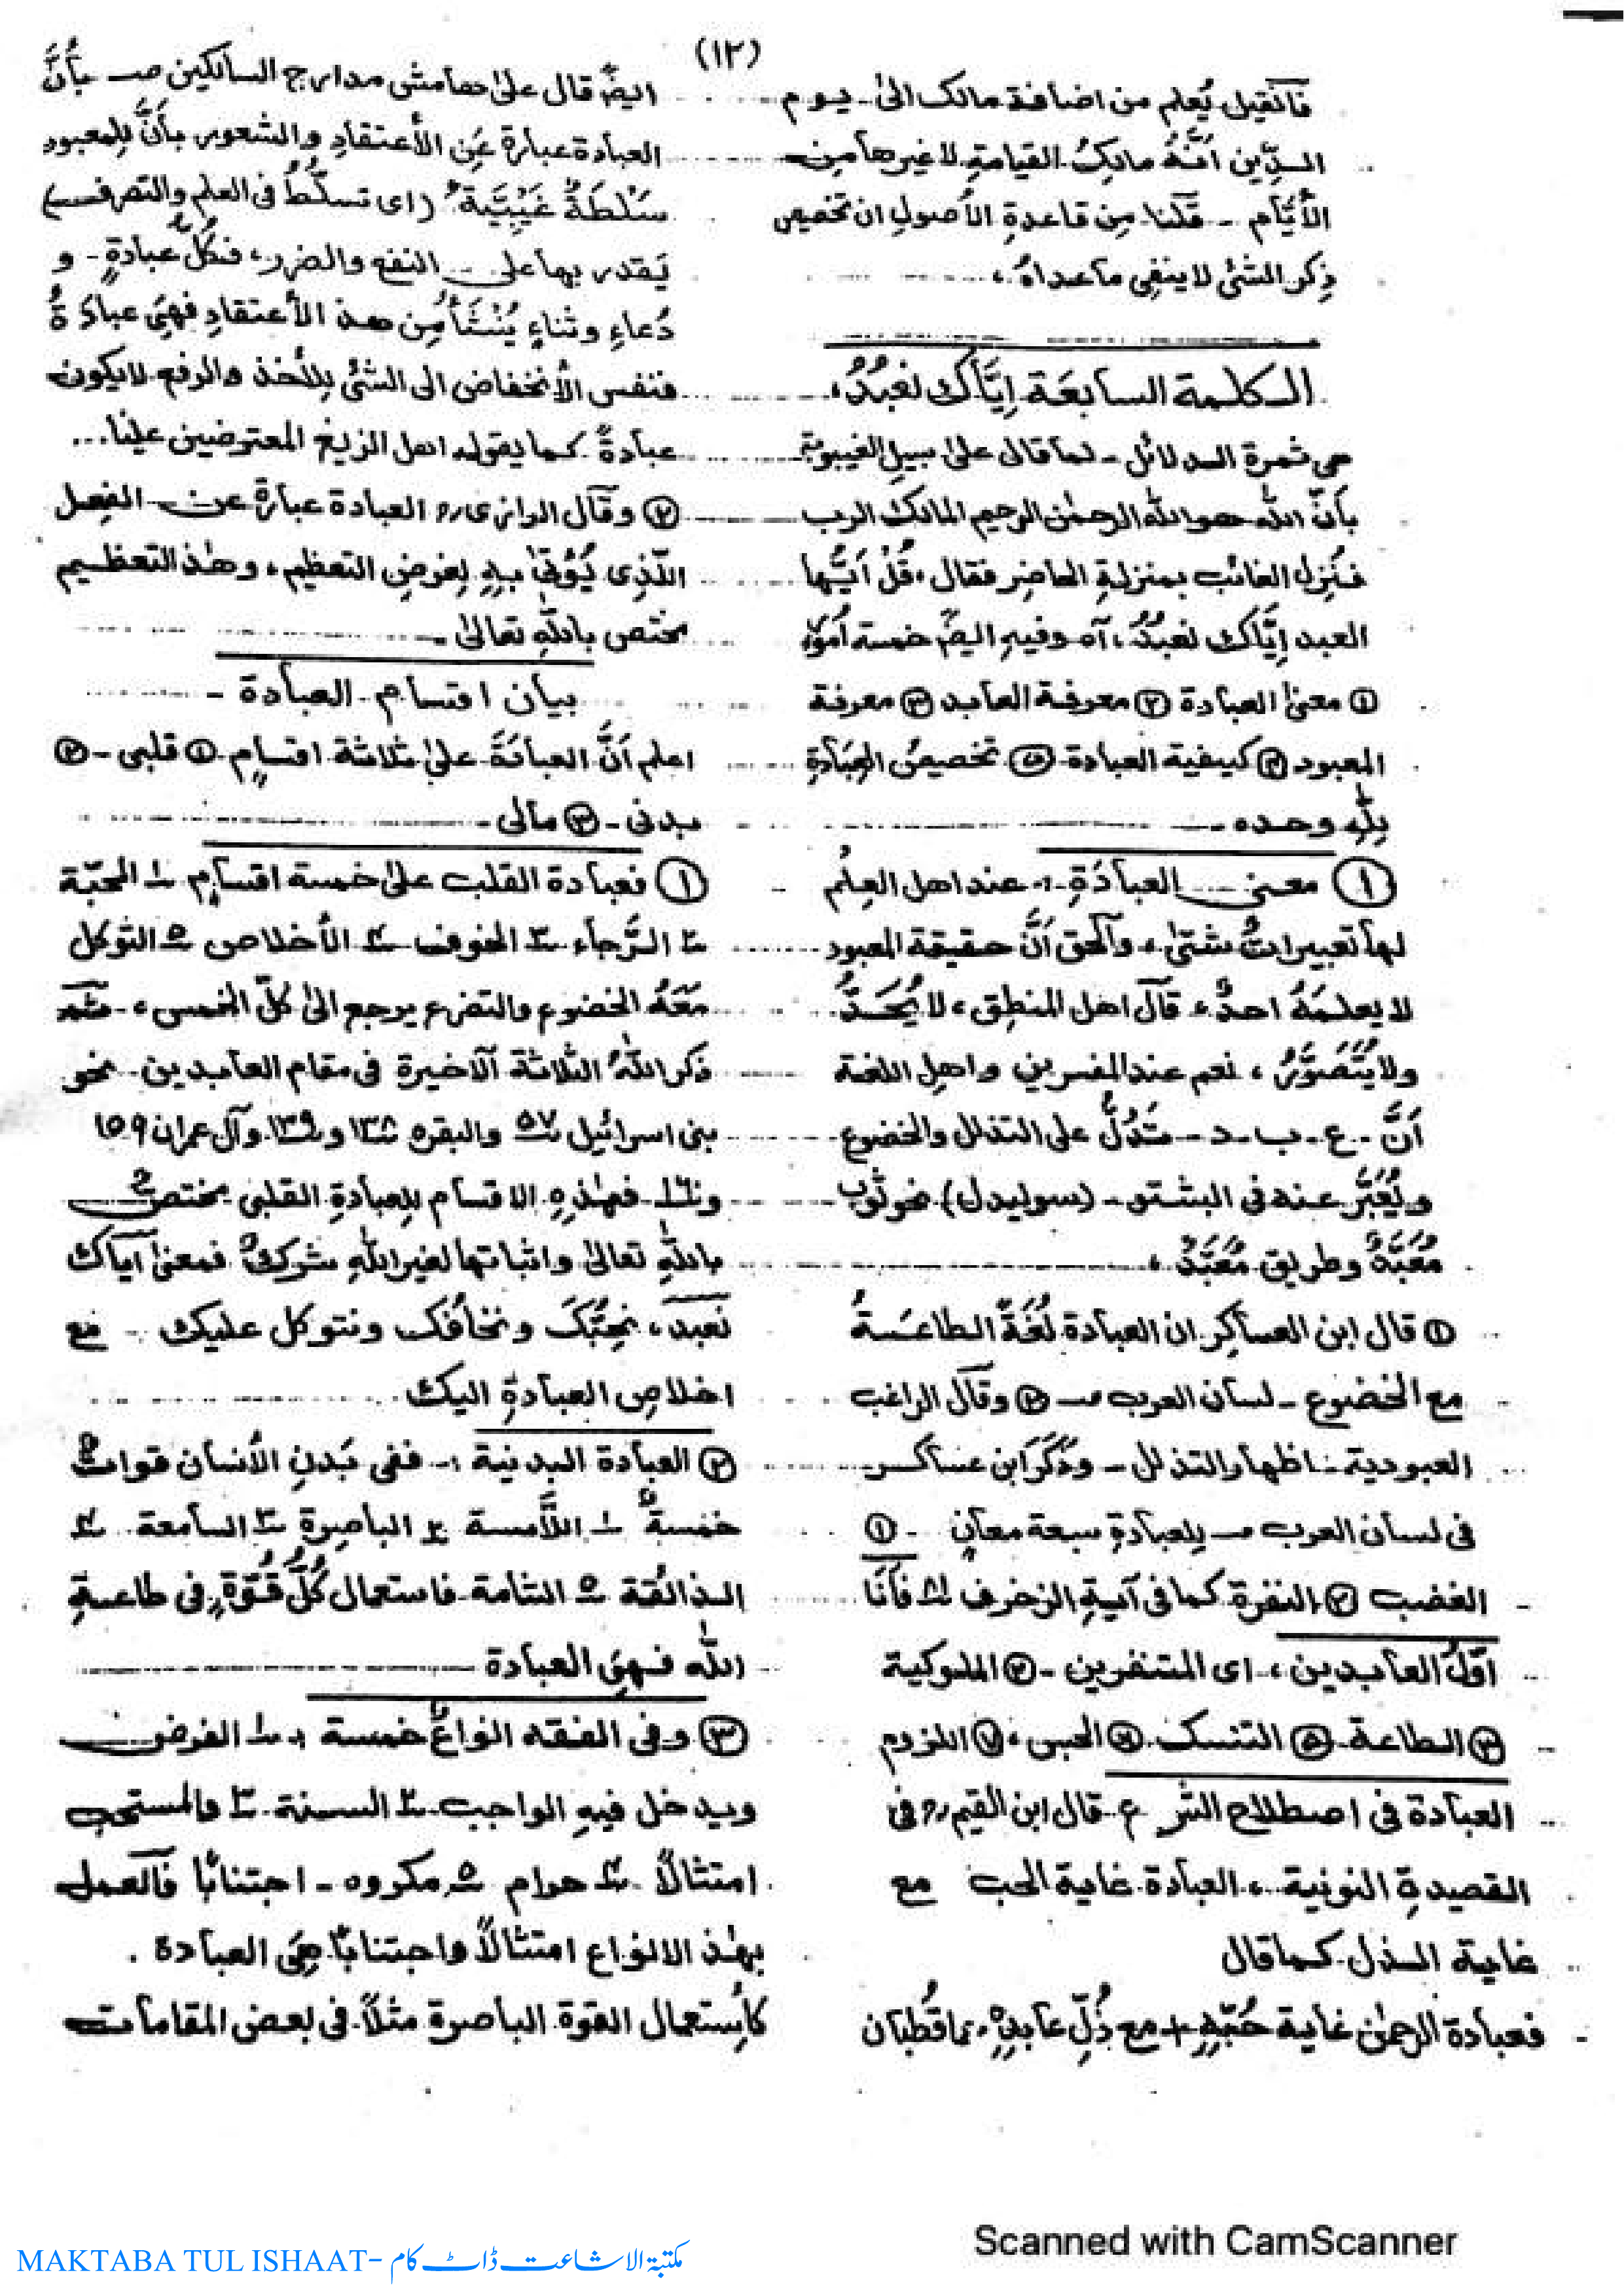 (۱۲)
فآنقيل يُعلم من اضافة مالك الىٰ يوم
الدِّين اَنَّهُ مالكُ القيامةِ لا غيرها مِن
الأيّام - قلنا مِن قاعدةِ الأصولِ ان تخصيص
ذِكر الشئ لا ينفِى ما عداهُ ،
الكلمة السابعَة اِيَّاكَ نعْبُدُ ،
هى ثمرة الدلائل - لما قال علىٰ سبيل الغيبوبة
بأنَّ الله هو الله الرحمٰن الرحيم المالك الرب
فنُزِل الغائب بمنزلةِ الحاضِر فقال ، قُلْ اَيُّها
العبد اِيَّاك نعبُدُ ، آه وفيهِ ايضًا خمسة اُمورٌ
① معنىٰ العبادة ② معرفة العابد ③ معرفة
المعبود ④ كيفية العبادة - ⑤ تخصيصُ العِبَادَةِ
لِلّٰهِ وحده -
① معنى العبادَةِ :- عند اهل العِلم
لها تعبيراتٌ شتىٰ ، والحق اَنَّ حقيقة المعبود
لا يعلمَهُ احدٌ ، قال اهل المنطِق ، لا يُحَدُّ
ولا يُتَصَوَّرُ ، نعم عند المفسرين واهلِ اللغة
اَنَّ - ع - ب - د - تَدُلُّ على التذلل والخضوع
ويُعَبَّرُ عنه فى البشتو - (سوليدل) نحو ثوب
مُعَبَّدةٌ وطريق مُعَبَّدٌ ،
① قال ابن العساكِر ان العبادة لُغَةً الطاعَةُ
مع الخضوع - لسان العرب صـ ② وقال الراغب
العبودية - اظهار التذلل - وذَكَرَ ابن عساكر
فى لسان العرب صـ لِلعبادةِ سبعة معانٍ - ①
الغضب ② النفرة كما فى آيةِ الزخرف فَأَنَا
اَوّلُ العابدين ، اى المتنفرين - ③ الملوكية
④ الطاعة - ⑤ التنسك ⑥ الحبس ، ⑦ اللزوم
العبادة فى اصطلاح الشرع - قال ابن القيم رح فى
القصيدةِ النونية ، العبادة غاية الحب مع
غاية الذل - كما قال
فعبادة الرحمٰن غاية حُبِّهٖ + مع ذُلِّ عابدِهٖ ، هما قُطبان
ايضًا قال علىٰ هامش مدارج السالكين صـ بأَنَّ
العبادة عبارة عَنِ الأعتقادِ والشعور بأنَّ لِلمعبود
سَلْطَةٌ غَيْبِيَّةٌ (اى تسلُّطٌ فى العلم والتصرف)
يَقدر بها على النفع والضرر ، فكُلُّ عبادةٍ - و
دُعاءٍ وثناءٍ يُنْشَأُ مِن هذ الأعتقادِ فهِىَ عبادَةٌ
فنفس الأنخفاض الى الشئ لِلأخذ والرفع لا يكون
عبادةً كما يقوله اهل الزيغ المعترضين علينا...
② وقال الرازى رح العبادة عبارة عن الفِعل
الّذِى يُؤتىٰ بهٖ لِغرضِ التعظيم ، وهذ التعظيم
مختص باللّٰهِ تعالىٰ -
بيان اقسام العبادة -
اعلم اَنَّ العبادَةَ علىٰ ثلاثة اقسامٍ - ① قلبى - ②
بدنى - ③ مالى -
① فعبادة القلب علىٰ خمسة اقسامٍ ١ المحبّة
٢ الرَّجاء ٣ الخوف ٤ الأخلاص ٥ التوكل
مَعَهُ الخضوع والتضرع يرجع الىٰ كلّ الخمس ، ثم
ذكر اللهُ الثلاثة الآخيرة فى مقام العابدين - نحو
بنى اسرائيل ٥٧ والبقره ١٣٨ و١٣٩ وآل عمران ١٥٩
فهٰذِهِ الاقسام لِلعبادةِ القلبى مختصٌ
باللّٰهِ تعالىٰ واثباتها لغير اللّٰهِ شركٌ فمعنىٰ اياك
نعبد ، نحِبُّكَ ونخافُكَ ونتوكل عليك - مَع
اخلاصِ العبادةِ اليك
② العبادة البدنية :- ففى بَدنِ الأنسان قواتٌ
خمسةٌ ١ اللَّامسة ٢ الباصِرة ٣ السامعة ٤
الذائقة ٥ الشامة - فاستعمال كُلُّ قُوَّةٍ فى طاعةِ
اللّٰه فهِىَ العبادة
③ وفى الفقه انواعٌ خمسة :- ١ الفرض
ويدخل فيهِ الواجب ٢ السنة - ٣ والمستحب
امتثالًا - ٤ حرام ٥ مكروه - اجتنابًا فالعمل
بهٰذ الانواع امتثالًا واجتنابًا هِىَ العبادة .
كاُستعمال القوة الباصرة مثلًا - فى بعض المقامات
Scanned with CamScanner
MAKTABA TUL ISHAAT- مکتبۃ الاشاعت ڈاٹ کام